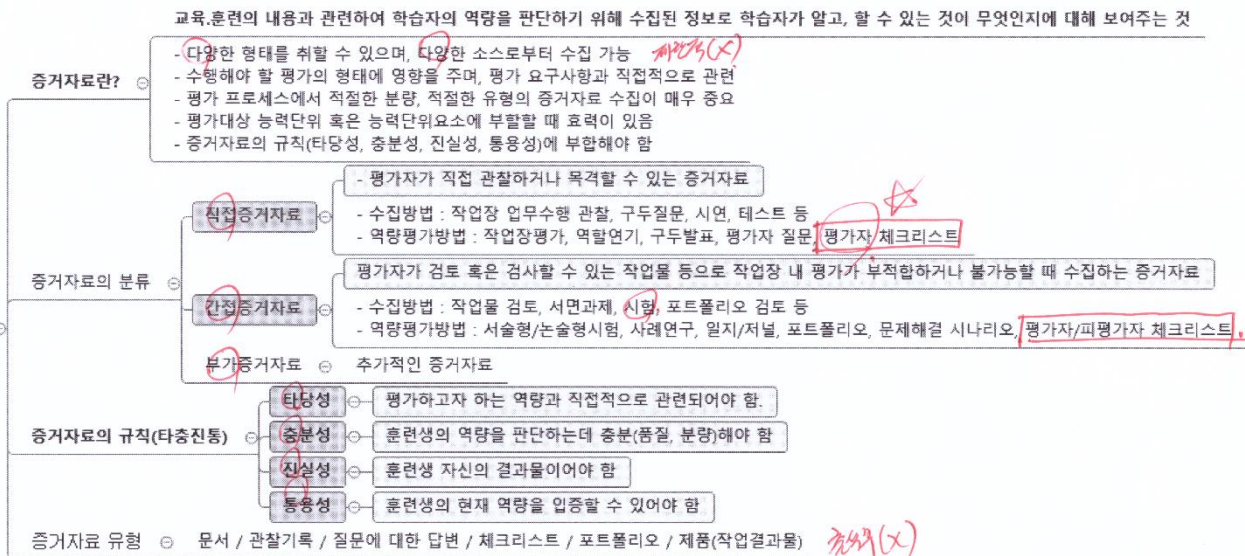 교육.훈련의 내용과 관련하여 학습자의 역량을 판단하기 위해 수집된 정보로 학습자가 알고, 할 수 있는 것이 무엇인지에 대해 보여주는 것
증거자료란?
- 다양한 형태를 취할 수 있으며, 다양한 소스로부터 수집 가능
(X)
- 수행해야 할 평가의 형태에 영향을 주며, 평가 요구사항과 직접적으로 관련
- 평가 프로세스에서 적절한 분량, 적절한 유형의 증거자료 수집이 매우 중요
- 평가대상 능력단위 혹은 능력단위요소에 부할할 때 효력이 있음
- 증거자료의 규칙(타당성, 충분성, 진실성, 통용성)에 부합해야 함
증거자료의 분류
직접증거자료
- 평가자가 직접 관찰하거나 목격할 수 있는 증거자료
- 수집방법 : 작업장 업무수행 관찰, 구두질문, 시연, 테스트 등
- 역량평가방법 : 작업장평가, 역할연기, 구두발표, 평가자 질문, 평가자 체크리스트
간접증거자료
평가자가 검토 혹은 검사할 수 있는 작업물 등으로 작업장 내 평가가 부적합하거나 불가능할 때 수집하는 증거자료
- 수집방법 : 작업물 검토, 서면과제, 시험, 포트폴리오 검토 등
- 역량평가방법 : 서술형/논술형시험, 사례연구, 일지/저널, 포트폴리오, 문제해결 시나리오, 평가자/피평가자 체크리스트
부가증거자료
추가적인 증거자료
증거자료의 규칙(타충진통)
타당성
평가하고자 하는 역량과 직접적으로 관련되어야 함.
충분성
훈련생의 역량을 판단하는데 충분(품질, 분량)해야 함
진실성
훈련생 자신의 결과물이어야 함
통용성
훈련생의 현재 역량을 입증할 수 있어야 함
증거자료 유형
문서 / 관찰기록 / 질문에 대한 답변 / 체크리스트 / 포트폴리오 / 제품(작업결과물)
(X)